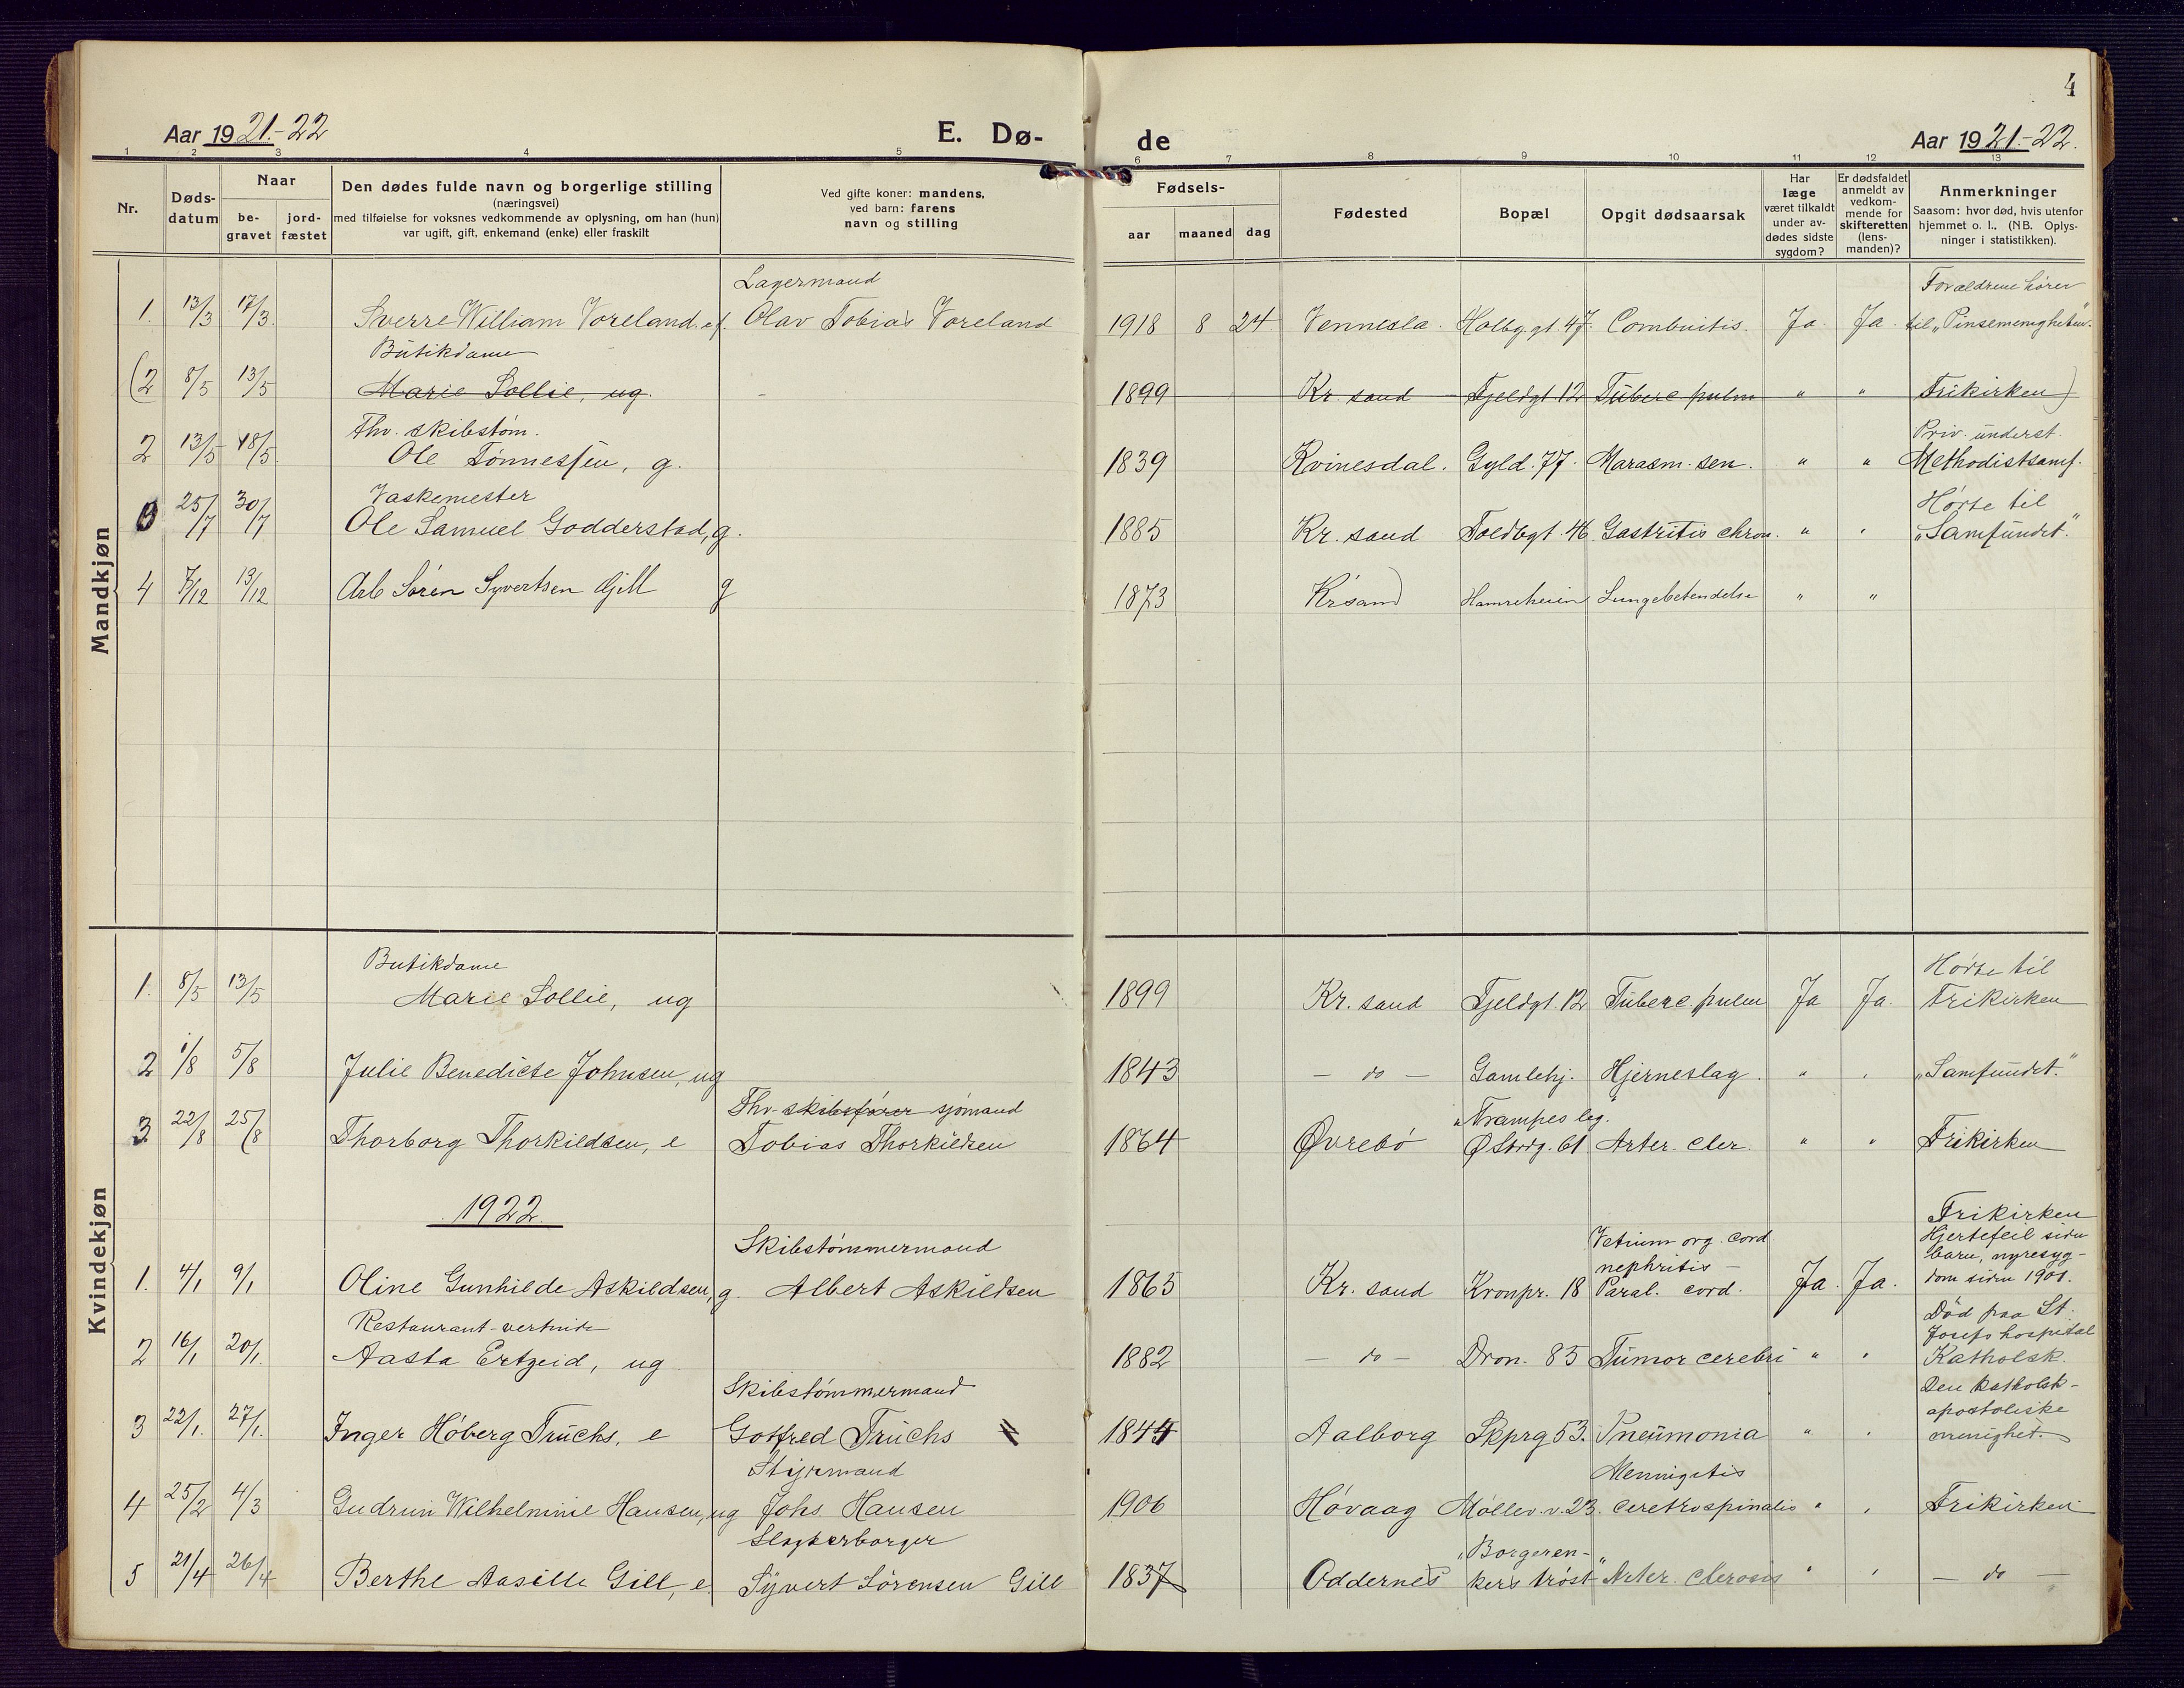 4
Aar 1921.-22 E. Dø- de Aar 1921-22.
1 2 3 4 5 6 7 8 9 10 11 12 13
Nr.
Døds-
datum
Naar
be-
gravet
jord-
fæstet
Den dødes fulde navn og borgerlige stilling
(næringsvei)
med tilføielse for voksnes vedkommende av oplysning, om han (hun)
var ugift, gift, enkemand (enke) eller fraskilt
Ved gifte koner: mandens,
ved barn: farens
navn og stilling
Fødsels-
aar maaned dag
Fødested
Bopæl
Opgit dødsaarsak
Har
læge
været tilkaldt
under av-
dødes sidste
sygdom?
Er dødsfaldet
anmeldt av
vedkom-
mende for
skifteretten
(lens-
manden)?
Anmerkninger
Saasom: hvor død, hvis utenfor
hjemmet o. l.. (NB. Oplys-
ninger i statistikken).
Mandkjøn
Lagermand Forældrene hører
1. 13/3 17/3. Sverre William Voreland. Olav Tobias Voreland 1918 8 24 Vennesla. Holbg.gt. 47. Combuitis. Ja. Ja. til „Pinsemenigheten".
Butikdame
(2 8/5 13/5 Marie Sollie, ug. - 1899 Kr. sand Fjeldgt 12 Tuberc pulm " " Frikirken)
Thv. skibstøm. Priv. underst.
2 13/5 18/5. Ole Tønnessen, g. 1839 Kvinesdal. Gyld. 77. Marasm. sen. " " Methodistsamf.
Vaskemester Hørte til
3 25/7 30/7 Ole Samuel Godderstad, g. 1885 Kr. sand Toldbgt. 46 Gastritis chron. " " „Samfundet."
4 7/12 13/12 Arb Søren Syvertsen Gjill g 1873 Krsand Hamreheien Lungebetendelse " "
Kvindekjøn
Butikdame Hørte til
1. 8/5 13/5 Marie Sollie, ug 1899 Kr. sand Fjeldgt. 12 Tuberc. pulm Ja Ja. Frikirken
2 1/8 5/8 Julie Benedicte Johnsen, ug 1843 - do - Gamlehj. Hjerneslag. " " „Samfundet."
Thv. skibsfører sjømand „Trampes leg."
3 22/8 25/8 Thorborg Thorkildsen, e Tobias Thorkildsen 1864 Øvrebø Ø Strdg. 61 Arter. cler. " " Frikirken
1922.
Skibstømmermand
Vetium org. cord
nephritis -
Frikirken
Hjertefeil siden
barn, nyresyg-
1. 4/1 9/1 Oline Gunhilde Askildsen, g. Albert Askildsen 1865 Kr. sand Kronpr. 18 Paral. cord. Ja. Ja. dom siden 1901.
Restaurant-vertinde
Død paa St.
Josefs hospital
2 16/1 20/1. Aasta Ertzeid, ug 1882 - do - Dron. 85 Tumor cerebri " " Katholsk.
Skibstømmermand
Den katholsk-
apostoliske
3 22/1. 27/1. Inger Høberg Truchs, e Gotfred Truchs 1844 Aalborg Skprg 53. Pneumonia " " menighet.
Styrmand Mennigitis
4 25/2 4/3 Gudrun Wilhelmine Hansen, ug Johs. Hansen 1906 Høvaag Møllev. v. 23. cerebrospinalis " " Frikirken
Slagterborger „Borgeren-
5 21/4 26/4 Berthe Aasille Gill, e Syvert Sørensen Gill 1837 Oddernes kers trøst" Arter. clerosis " " - do -